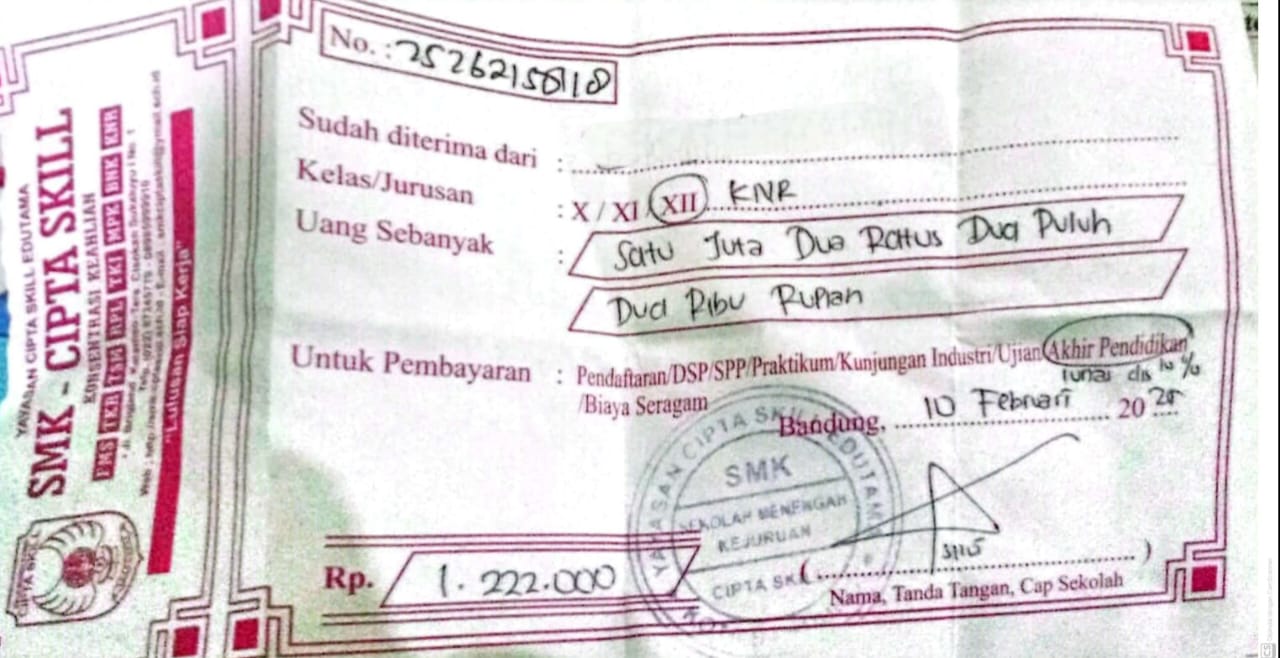 YAYASAN CIPTA SKILL EDUTAMA
SMK - CIPTA SKILL
KONSENTRASI KEAHLIAN
PMS TKR TSM RPL TKJ MPK BNK KNR
"Lulusan Siap Kerja"
CIPTA SKILL
No. : 25262158118
Sudah diterima dari :
Kelas/Jurusan : X / XI / XII KNR
Uang Sebanyak : Satu Juta Dua Ratus Dua Puluh
Dua Ribu Rupiah
Untuk Pembayaran : Pendaftaran/DSP/SPP/Praktikum/Kunjungan Industri/Ujian Akhir Pendidikan
/Biaya Seragam
Tunai dis 10 %
Bandung, 10 Februari 20
YAYASAN CIPTA SKILL EDUTAMA
SMK
SEKOLAH MENENGAH
KEJURUAN
CIPTA SKILL
Rp. 1.222.000
Nama, Tanda Tangan, Cap Sekolah